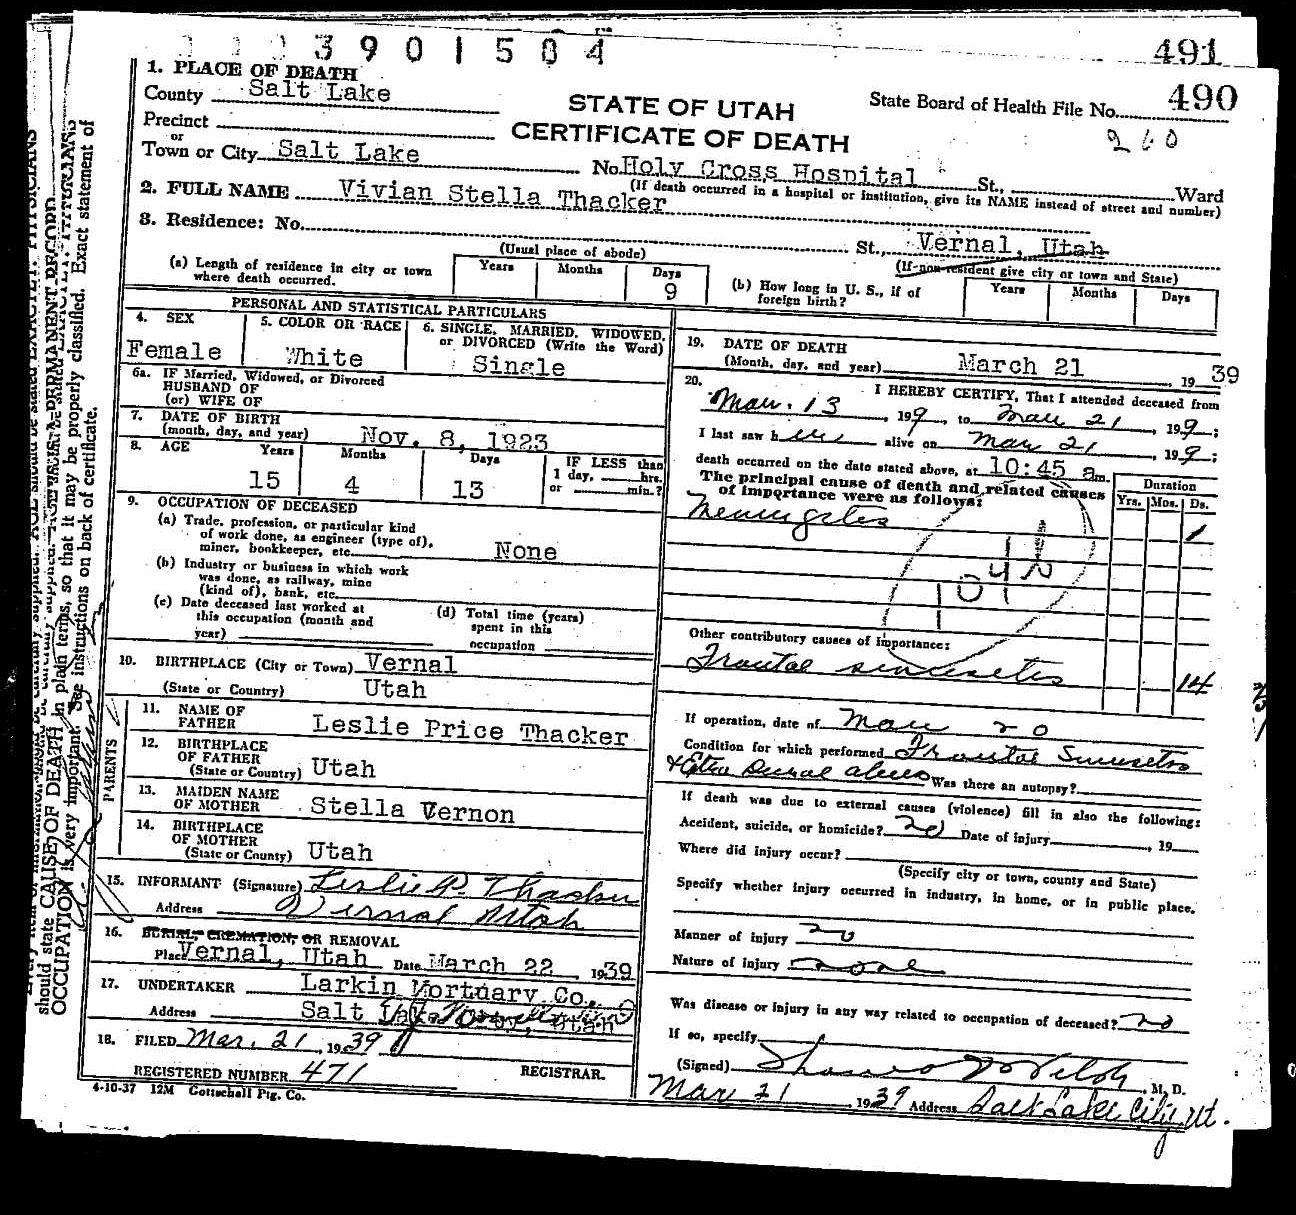 3901504
491
490
260
1. PLACE OF DEATH
County Salt Lake
STATE OF UTAH
CERTIFICATE OF DEATH
State Board of Health File No.
Precinct
or
Town or City Salt Lake
No. Holy Cross Hospital St., Ward
(If death occurred in a hospital or institution, give its NAME instead of street and number)
2. FULL NAME Vivian Stella Thacker
3. Residence: No. St., Vernal, Utah
(Usual place of abode)
(If non-resident give city or town and State)
(a) Length of residence in city or town where death occurred.
Years Months Days
9
(b) How long in U. S., if of foreign birth?
Years Months Days
PERSONAL AND STATISTICAL PARTICULARS
4. SEX
Female
5. COLOR OR RACE
White
6. SINGLE, MARRIED, WIDOWED, or DIVORCED (Write the Word)
Single
6a. IF Married, Widowed, or Divorced
HUSBAND OF
(or) WIFE OF
7. DATE OF BIRTH
(month, day, and year) Nov. 8, 1923
8. AGE Years Months Days
15 4 13
IF LESS than
1 day, hrs.
or min.?
9. OCCUPATION OF DECEASED
(a) Trade, profession, or particular kind
of work done, as engineer (type of),
miner, bookkeeper, etc. None
(b) Industry or business in which work
was done, as railway, mine
(kind of), bank, etc.
(c) Date deceased last worked at
this occupation (month and
year)
(d) Total time (years)
spent in this
occupation
10. BIRTHPLACE (City or Town) Vernal
(State or Country) Utah
PARENTS
11. NAME OF
FATHER Leslie Price Thacker
12. BIRTHPLACE
OF FATHER
(State or Country) Utah
13. MAIDEN NAME
OF MOTHER Stella Vernon
14. BIRTHPLACE
OF MOTHER
(State or Country) Utah
15. INFORMANT (Signature) Leslie P. Thacker
Address Vernal Utah
16. BURIAL, CREMATION, OR REMOVAL
Place Vernal, Utah Date March 22, 1939
17. UNDERTAKER Larkin Mortuary Co.
Address Salt Lake City, Utah
18. FILED Mar. 21, 1939
REGISTRAR.
REGISTERED NUMBER 471
4-10-37 12M Gottschall Ptg. Co.
19. DATE OF DEATH
(Month, day, and year) March 21, 1939
20. I HEREBY CERTIFY, That I attended deceased from
Mar. 13, 199, to Mar 21, 199;
I last saw her alive on Mar 21, 199;
death occurred on the date stated above, at 10:45 a m.
The principal cause of death and related causes
of importance were as follows:
Duration
Yrs. Mos. Ds.
Meningites 1
104b
Other contributory causes of importance:
Frontal sinusetis 14
If operation, date of Mar 20
Condition for which performed Frontal Sinusetis
& Extra Dural abces Was there an autopsy?
If death was due to external causes (violence) fill in also the following:
Accident, suicide, or homicide? no Date of injury , 19
Where did injury occur?
(Specify city or town, county and State)
Specify whether injury occurred in industry, in home, or in public place.
Manner of injury no
Nature of injury none
Was disease or injury in any way related to occupation of deceased? no
If so, specify
(Signed) M. D.
Mar 21, 1939 Address Salt Lake City, Ut.
should state CAUSE OF DEATH in plain terms, so that it may be properly classified. Exact statement of
OCCUPATION is very important. See instructions on back of certificate.